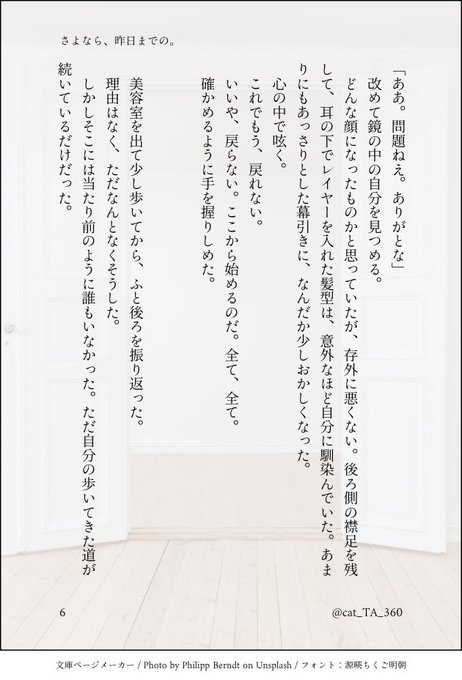 さよなら、昨日までの。
「ああ。問題ねえ。ありがとな」
改めて鏡の中の自分を見つめる。
どんな顔になったものかと思っていたが、存外に悪くない。後ろ側の襟足を残
して、耳の下でレイヤーを入れた髪型は、意外なほど自分に馴染んでいた。あま
りにもあっさりとした幕引きに、なんだか少しおかしくなった。
心の中で呟く。
これでもう、戻れない。
いいや、戻らない。ここから始めるのだ。全て、全て。
確かめるように手を握りしめた。
美容室を出て少し歩いてから、ふと後ろを振り返った。
理由はなく、ただなんとなくそうした。
しかしそこには当たり前のように誰もいなかった。ただ自分の歩いてきた道が
続いているだけだった。
6
@cat_TA_360
文庫ページメーカー / Photo by Philipp Berndt on Unsplash / フォント：源暎ちくご明朝